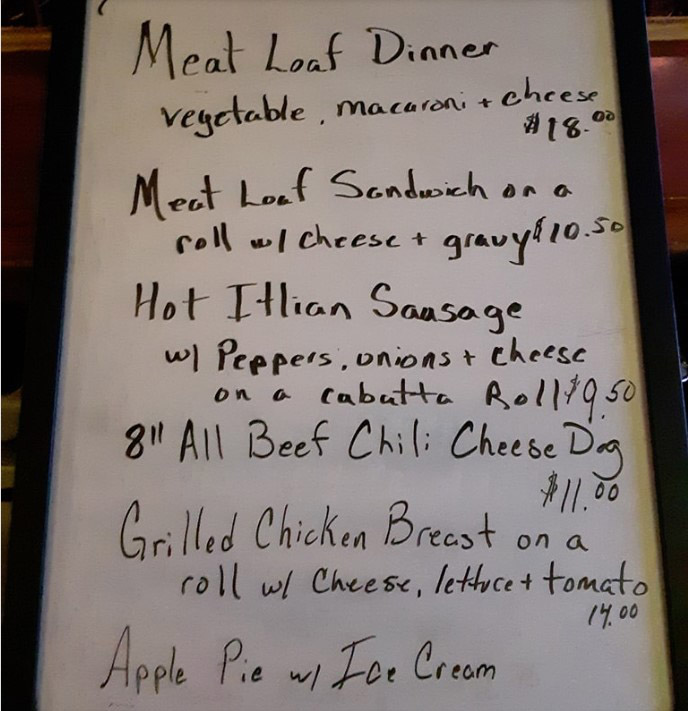 Meat Loaf Dinner
vegetable, macaroni + cheese
$18.00
Meat Loaf Sandwich on a
roll w/ cheese + gravy $10.50
Hot Itlian Sausage
w/ Peppers, onions + cheese
on a cabatta Roll $9.50
8" All Beef Chili Cheese Dog
$11.00
Grilled Chicken Breast on a
roll w/ Cheese, lettuce + tomato
14.00
Apple Pie w/ Ice Cream